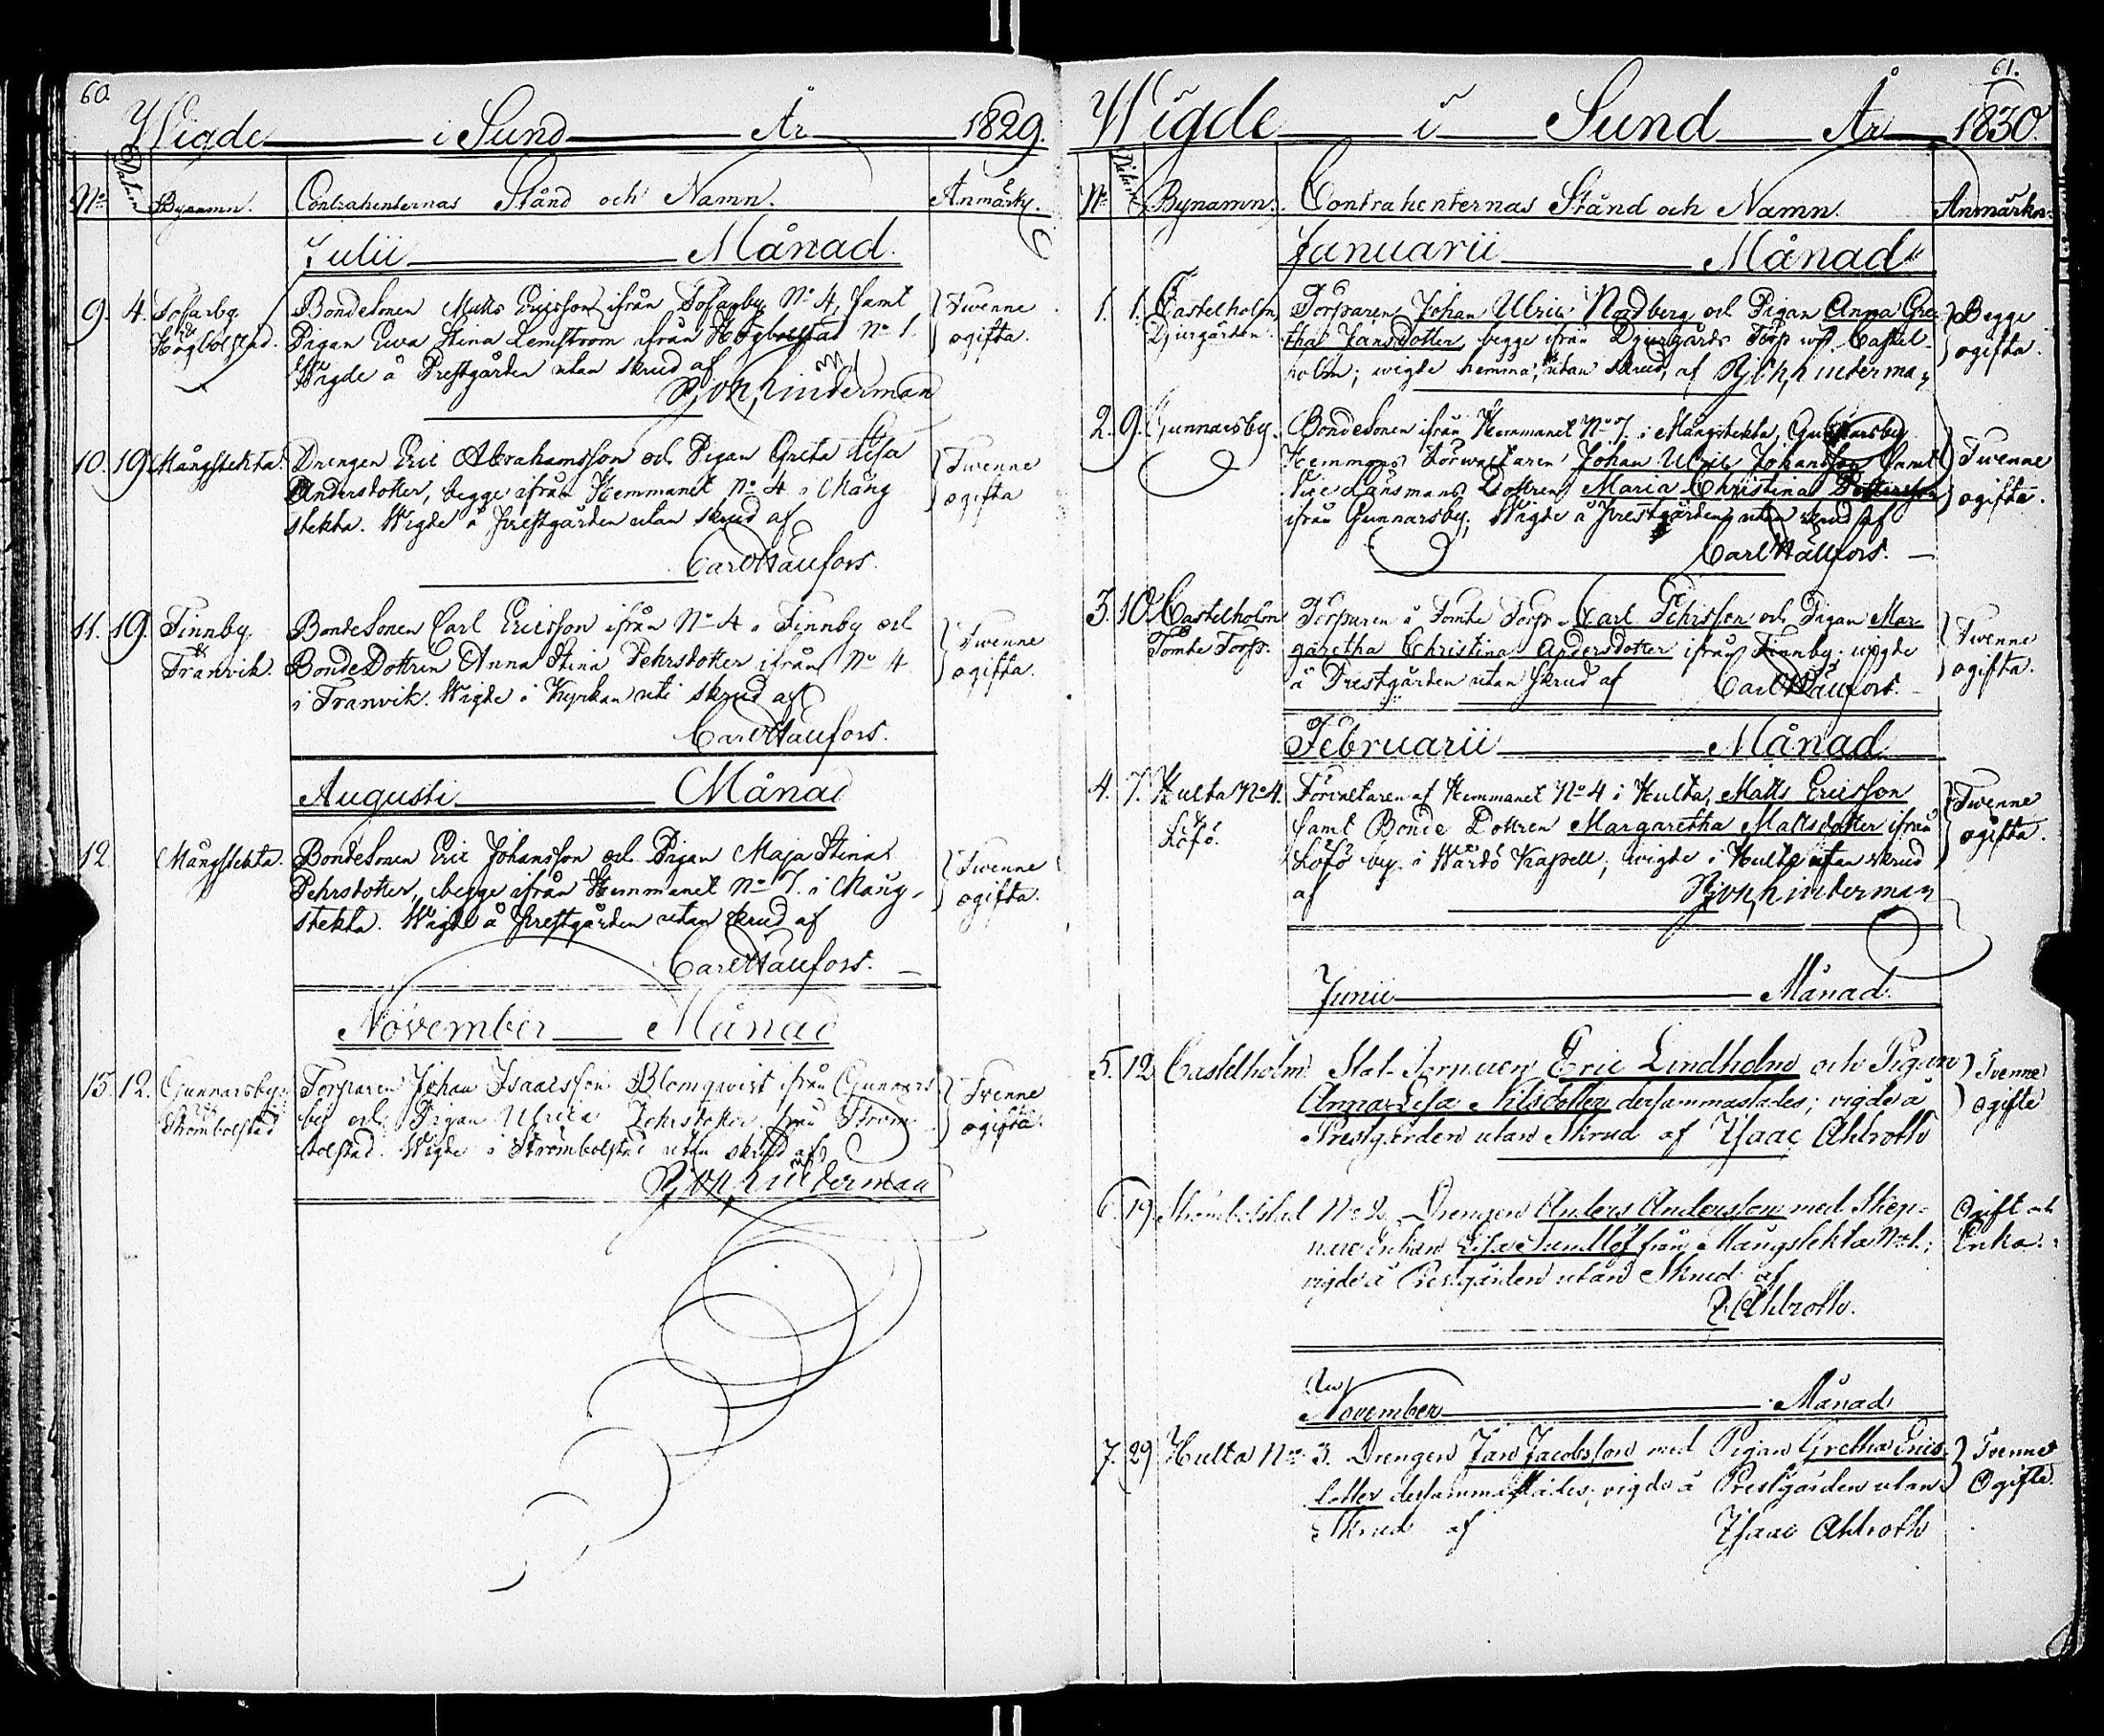 60.
Wigde i Sund År 1829.
No Datum Bynamn. Contrahenternas Stånd och Namn. Anmärkn.
Julii Månad.
9. 4. Tosarby Bondesonen Matts Ericsson ifrån Tosarby No 4, samt } Twenne
Högbolstad. Pigan Ewa Stina Lemström ifrån Högbolstad No 1. } ogifta.
Wigde å Prestgården utan skrud af
Linderman
10. 19 Mångstekta. Drengen Eric Abrahamsson och Pigan Greta Lisa } Twenne
Andersdotter, begge ifrån Hemmanet No 4 i Mång } ogifta
stekta. Wigde å Prestgården utan skrud af
Carl Häufors.
11. 19. Finnby Bondesonen Carl Ericsson ifrån No 4 i Finnby och } Twenne
& Tranvik. BondeDottren Anna Stina Pehrsdotter ifrån No 4 } ogifta.
i Tranvik. Wigde i Kyrkan uti skrud af
Carl Häufors.
Augusti Månad
12. Mångstekta. Bondesonen Eric Johansson och Pigan Maja Stina } Twenne
Pehrsdotter, begge ifrån Hemmanet No 7. i Mång- } ogifta.
stekta. Wigde å Prestgården utan skrud af
Carl Häufors.
November Månad
13. 12. Gunnarsby Torparen Johan Isaacsson Blomqvist ifrån Gunnars } Twenne
Strömbolstad by och Pigan Ulrica Pehrsdotter från Ström } ogifta.
bolstad. Wigde i Strömbolstad utan skrud af
Linderman
61.
Wigde i Sund År 1830.
No Datum Bynamn. Contrahenternas Stånd och Namn. Anmärkn.
Januarii Månad
1. 1. Castelholm, Torparen Johan Ulric Nordberg och Pigan Anna Gre } Begge
Djurgården. tha Jansdotter, begge ifrån Djurgårds Torp u. Castel- } ogifta.
holm; wigde hemma, utan skrud, af Linderman
2. 9. Gunnarsby. Bondesonen ifrån Hemmanet No 7. i Mångstekta, Gunnarsby
Hemmans Förwaltaren Johan Ulric Johansson samt } Twenne
Vice Länsmans Dottren Maria Christina Pettersson } ogifta.
ifrån Gunnarsby; Wigde å Prestgården utan skrud af
Carl Häufors.
3. 10. Castelholm Torparen å Tomte Torp Carl Pehrsson och Pigan Mar } Twenne
Tomte Torp. garetha Christina Andersdotter ifrån Finnby; wigde } ogifta.
å Prestgården utan skrud af Carl Häufors.
Februarii Månad
4. 7. Hulta No 4. Förvaltaren af Hemmanet No 4 i Hulta, Matts Ericsson } Twenne
Löfö. samt Bonde Dottren Margaretha Mattsdotter ifrån } ogifta.
Löfö by i Wårdö Kapell; wigde i Hulta utan skrud
af Linderman
Junii Månad.
5. 12 Castelholm. Stat-Torparen Eric Lindholm och Pigan } Tvenne
Anna Lisa Nilsdotter dersammastades; vigde å } Ogifte
Prestgården utan Skrud af Isaac Ahlroth
6. 19 Strömbolstad No 2. Drengen Anders Andersson med Skep- Ogift och
nare Enkan Lisa Sundlöf från Mångstekta No 1.; Enka.
vigde å Prestgården utan Skrud af
I. Ahlroth.
November Månad
7. 29 Hulta No 3. Drengen Jan Jacobsson med Pigan Gretha Erics } Tvenne
dotter dersammastädes; vigde å Prestgården utan } Ogifte.
Skrud af Isaac Ahlroth